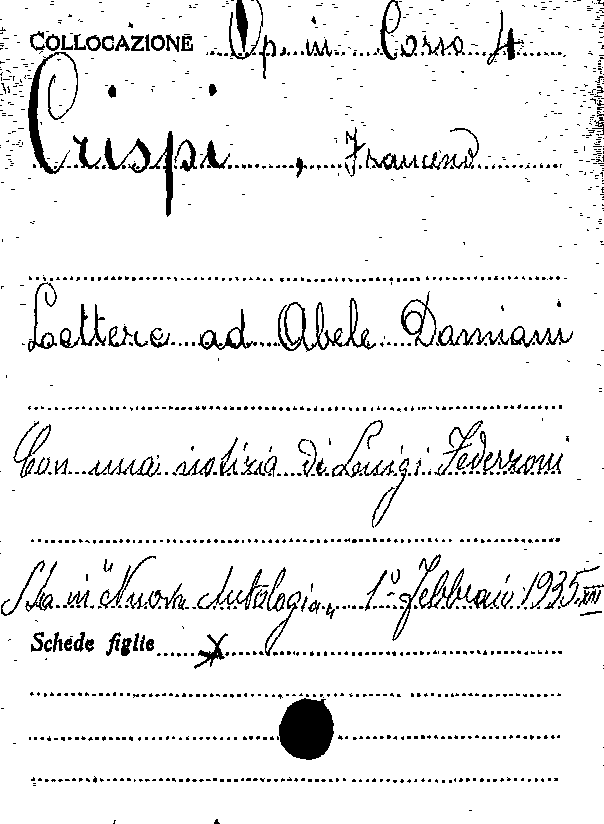 COLLOCAZIONE Op. in Corso 4
Crispi, Francesco
Lettere ad Abele Damiani
Con una notizia di Luigi Federzoni
Sta in "Nuova Antologia„ 1° Febbraio 1935 XIII
Schede figlie X